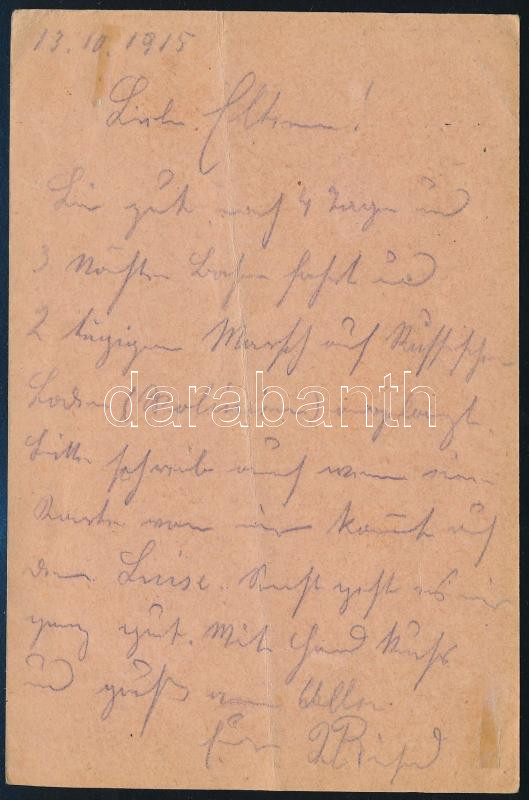 13.10.1915
Liebe Eltern!
Bin gut nach 4 Tage und
3 Nächten Bahn fahrt und
2 tägigen Marsch auf Russischen
Boden eingelangt.
darabanth
Bitte schreib auch wenn
Karte von mir kommt auf
dem Luise. Sonst geht es mir
ganz gut. Mit Hand Kuss
und gruß an Alle.
Euer